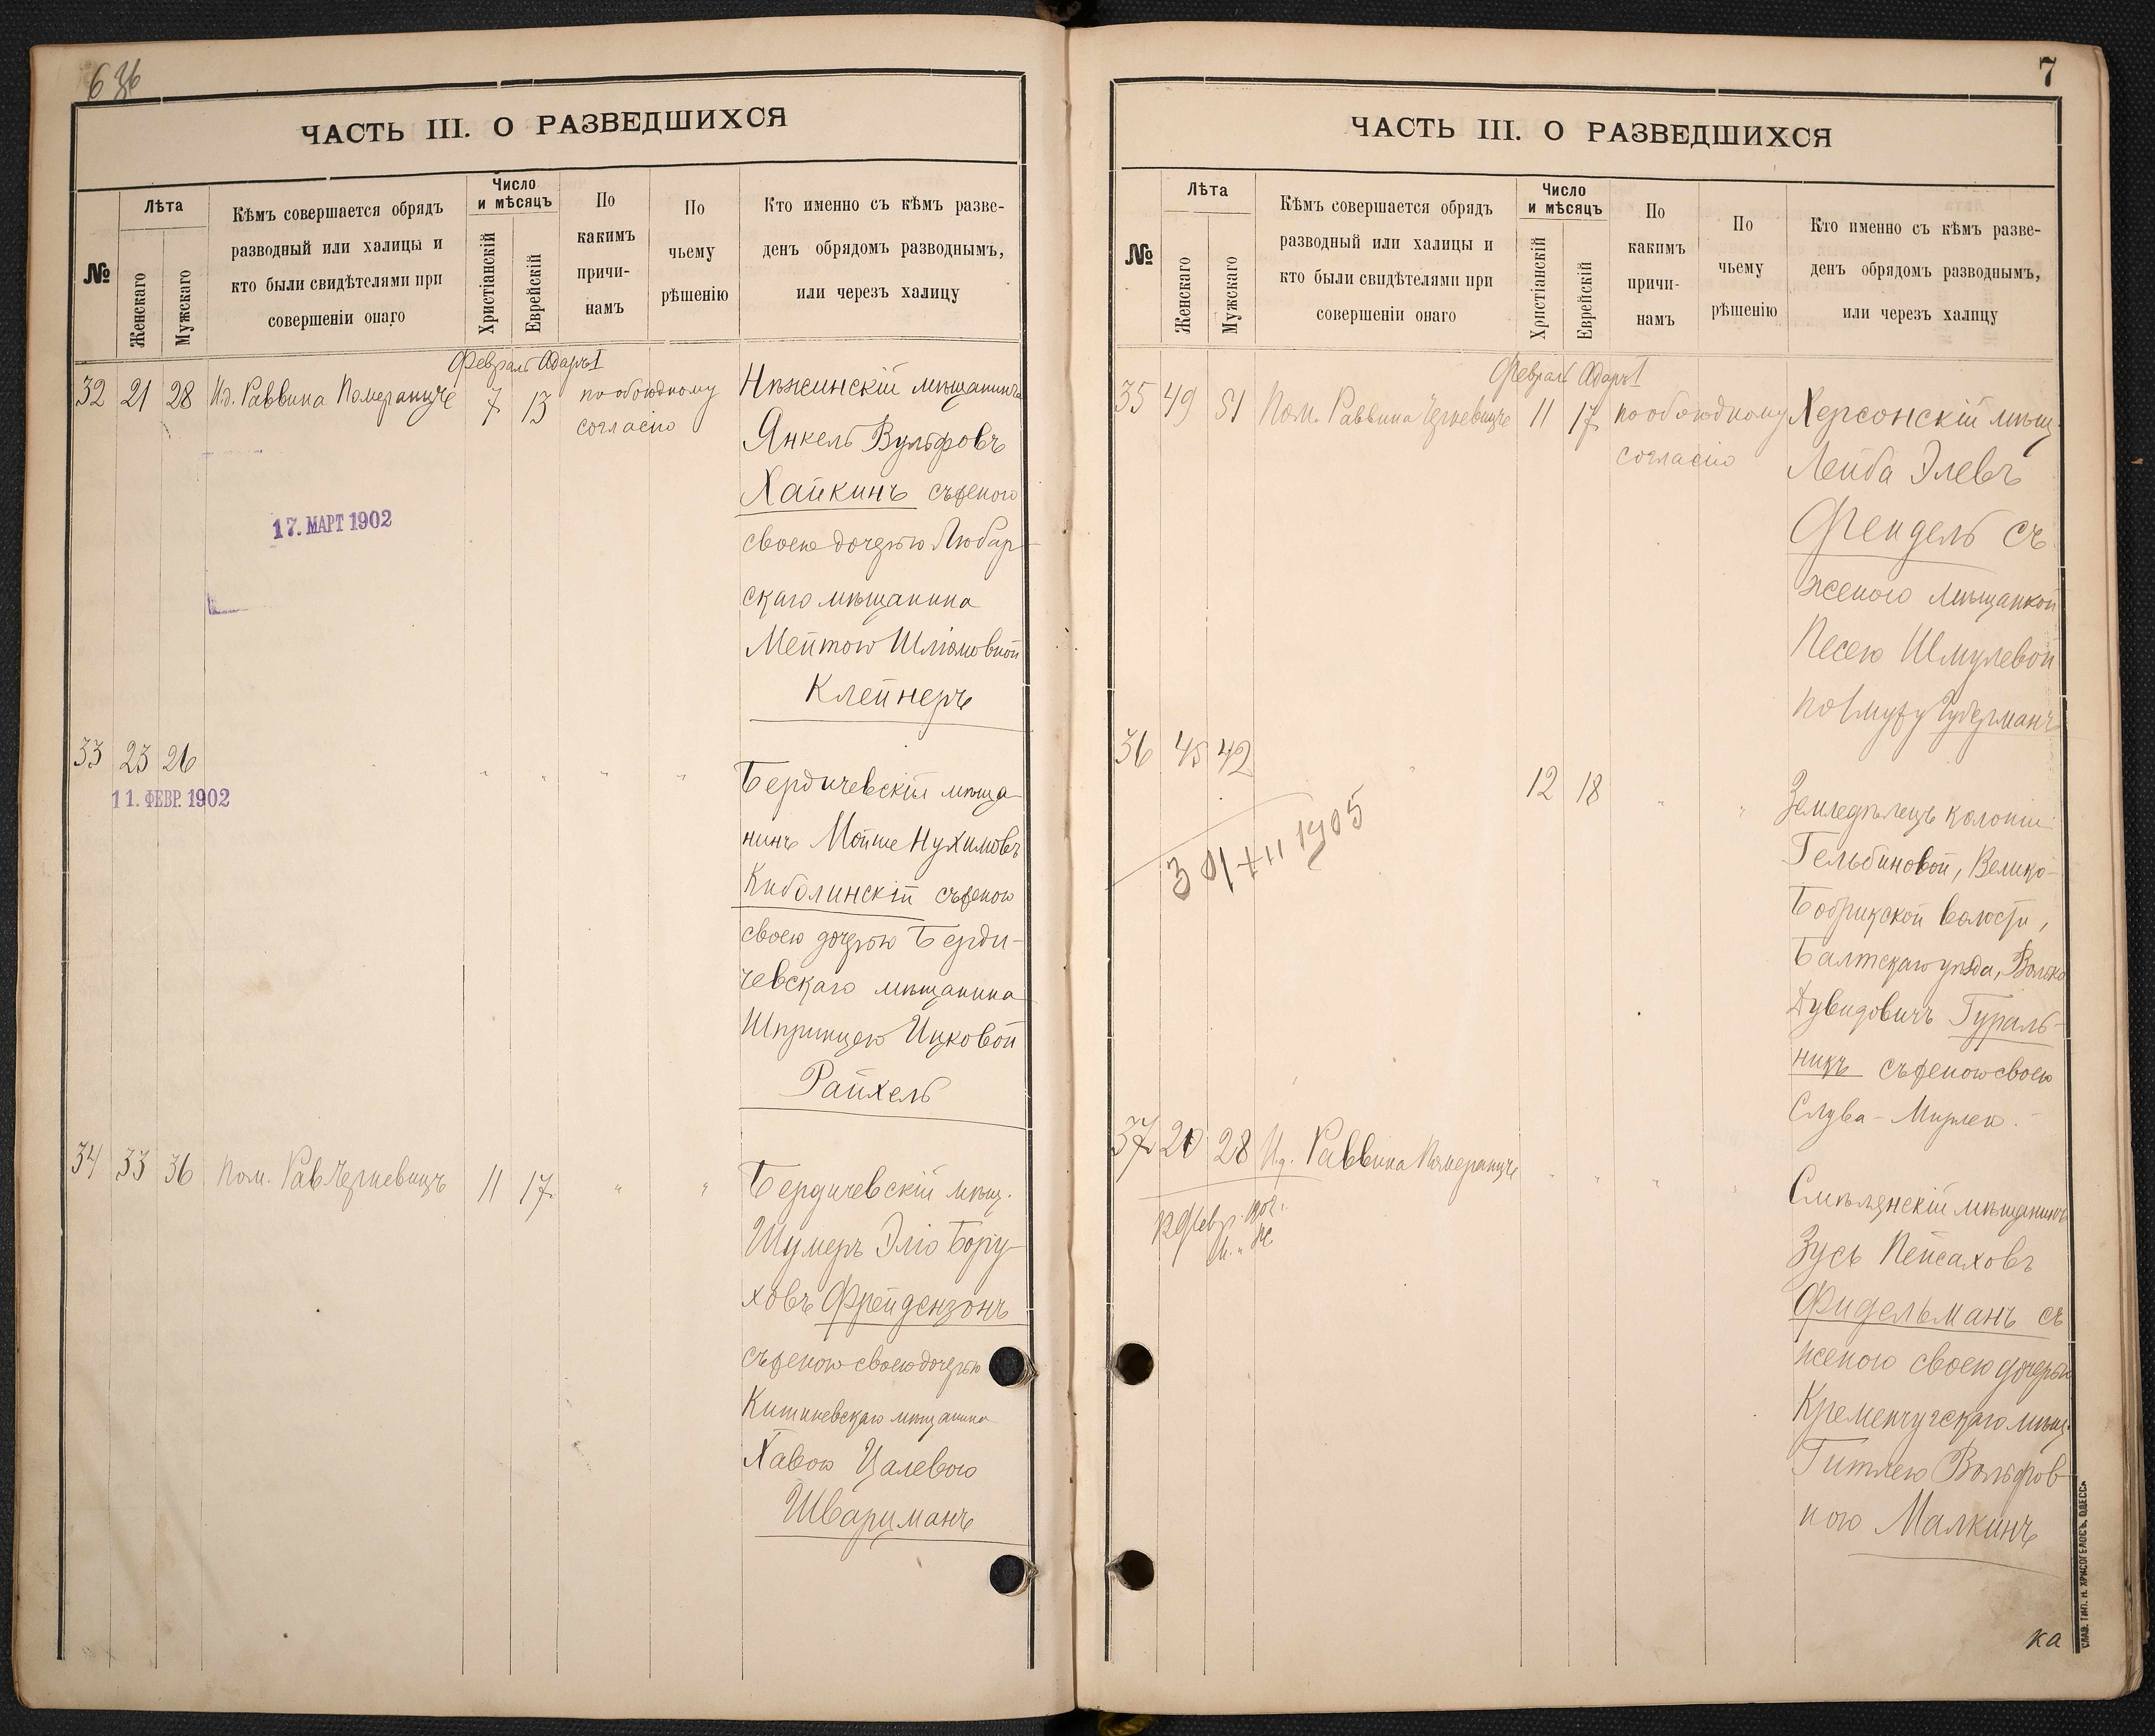 6 36
ЧАСТЬ III. О РАЗВЕДШИХСЯ
№
Лѣта
Женскаго
Мужскаго
Кѣмъ совершается обрядъ
разводный или халицы и
кто были свидѣтелями при
совершеніи онаго
Число
и мѣсяцъ
Христіанскій
Еврейскій
По
какимъ
причи-
намъ
По
чьему
рѣшенію
Кто именно съ кѣмъ разве-
денъ обрядомъ разводнымъ,
или черезъ халицу
Февраль Адаръ I
32 21 28 И.д. Раввина Померанцъ 7 13 по обоюдному
согласію
Нѣжинскій мѣщанинъ
Янкель Вульфовъ
Хайкинъ съ женою
своею дочерью Любар-
скаго мѣщанина
Мейтою Шліомовной
Клейнеръ
17. МАРТ 1902
33 23 26 " " " "
11. ФЕВР. 1902
Бердичевскій мѣща-
нинъ Мойше Нухимовъ
Кнболинскій съ женою
своею дочерью Берди-
чевскаго мѣщанина
Шпринцею Ицковой
Райхель
34 33 36 Пом. Рав Черневицъ 11 17 " "
Бердичевскій мѣщ.
Шумеръ Эліо Бору-
ховъ Фрейдензонъ
съ женою своею дочерью
Кишиневскаго мѣщанина
Хавою Цалевою
Шварцманъ
7
ЧАСТЬ III. О РАЗВЕДШИХСЯ
№
Лѣта
Женскаго
Мужскаго
Кѣмъ совершается обрядъ
разводный или халицы и
кто были свидѣтелями при
совершеніи онаго
Число
и мѣсяцъ
Христіанскій
Еврейскій
По
какимъ
причи-
намъ
По
чьему
рѣшенію
Кто именно съ кѣмъ разве-
денъ обрядомъ разводнымъ,
или черезъ халицу
Февраль Адаръ I
35 49 51 Пом. Раввина Черневицъ 11 17 по обоюдному
согласію
Херсонскій мѣщ.
Лейба Элевъ
Фендель съ
женою мѣщанкой
Песею Шмулевой
по мужу Губерманъ
36 45 42 " 12 18 " "
3 XII 1905
Земледѣлецъ колоніи
Гельбиновой, Велико-
Бобрицкой волости,
Балтскаго уѣзда, Волько
Дувидовичъ Гураль-
никъ съ женою своею
Слува-Мирлею.
37 20 28 И.д. Раввина Померанцъ " " " "
12 Февр. 1902 г.
Смѣлянскій мѣщанинъ
Зусь Пейсаховъ
Фидельманъ съ
женою своею дочерью
Кременчугскаго мѣщ.
Гитлею Вольфов-
ною Малкинъ
СЛАВ. ТИП. Н. ХРИСОГЕЛОСЪ, ОДЕССА
ка